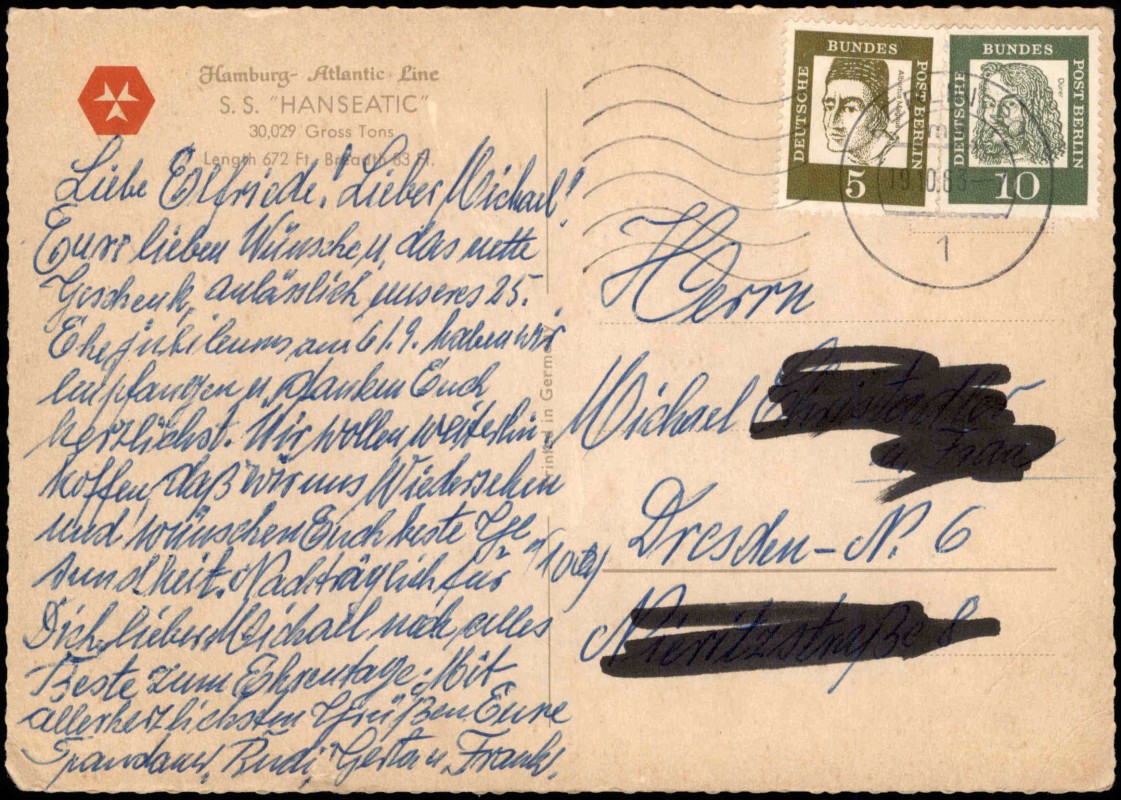 Hamburg- Atlantic Line
S. S. "HANSEATIC"
30,029 Gross Tons
Length 672 Ft. Breadth 83 Ft.
Liebe Elfriede! Lieber Michael!
Eure lieben Wünsche u. das nette
Geschenk, anlässlich unseres 25.
Ehejubileums am 6/9. haben wir
empfangen u. danken Euch
herzlichst. Wir wollen weiterhin
hoffen, daß wir uns Wiedersehen
und wünschen Euch beste Ge
sundheit. Nachträglich für
Dich, lieber Michael noch alles
Beste zum Ehrentage. Mit
allerherzlichsten Grüßen Eure
Spandauer, Rudi, Gerta u. Frank.
Printed in Germany
DEUTSCHE BUNDES POST BERLIN
5
DEUTSCHE BUNDES POST BERLIN
Dürer
10
19.10.63
1
Herrn
Michael
Dresden-N. 6